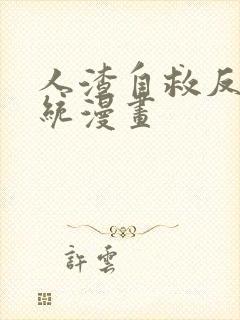 人渣自救反
統漫畫
許雲